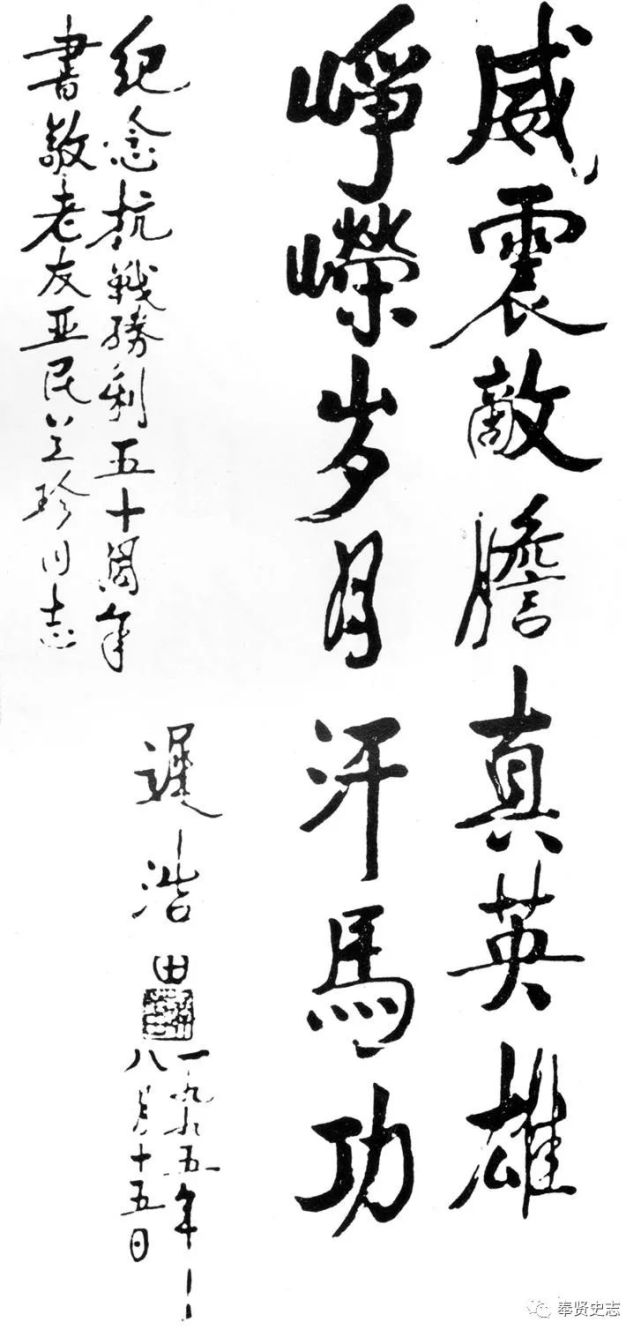 威震敵膽真英雄
崢嶸岁月汗馬功
紀念抗戰勝利五十周年
書敬老友亚民珍同志
遲浩田
一九九五年
八月十五日
奉贤史志